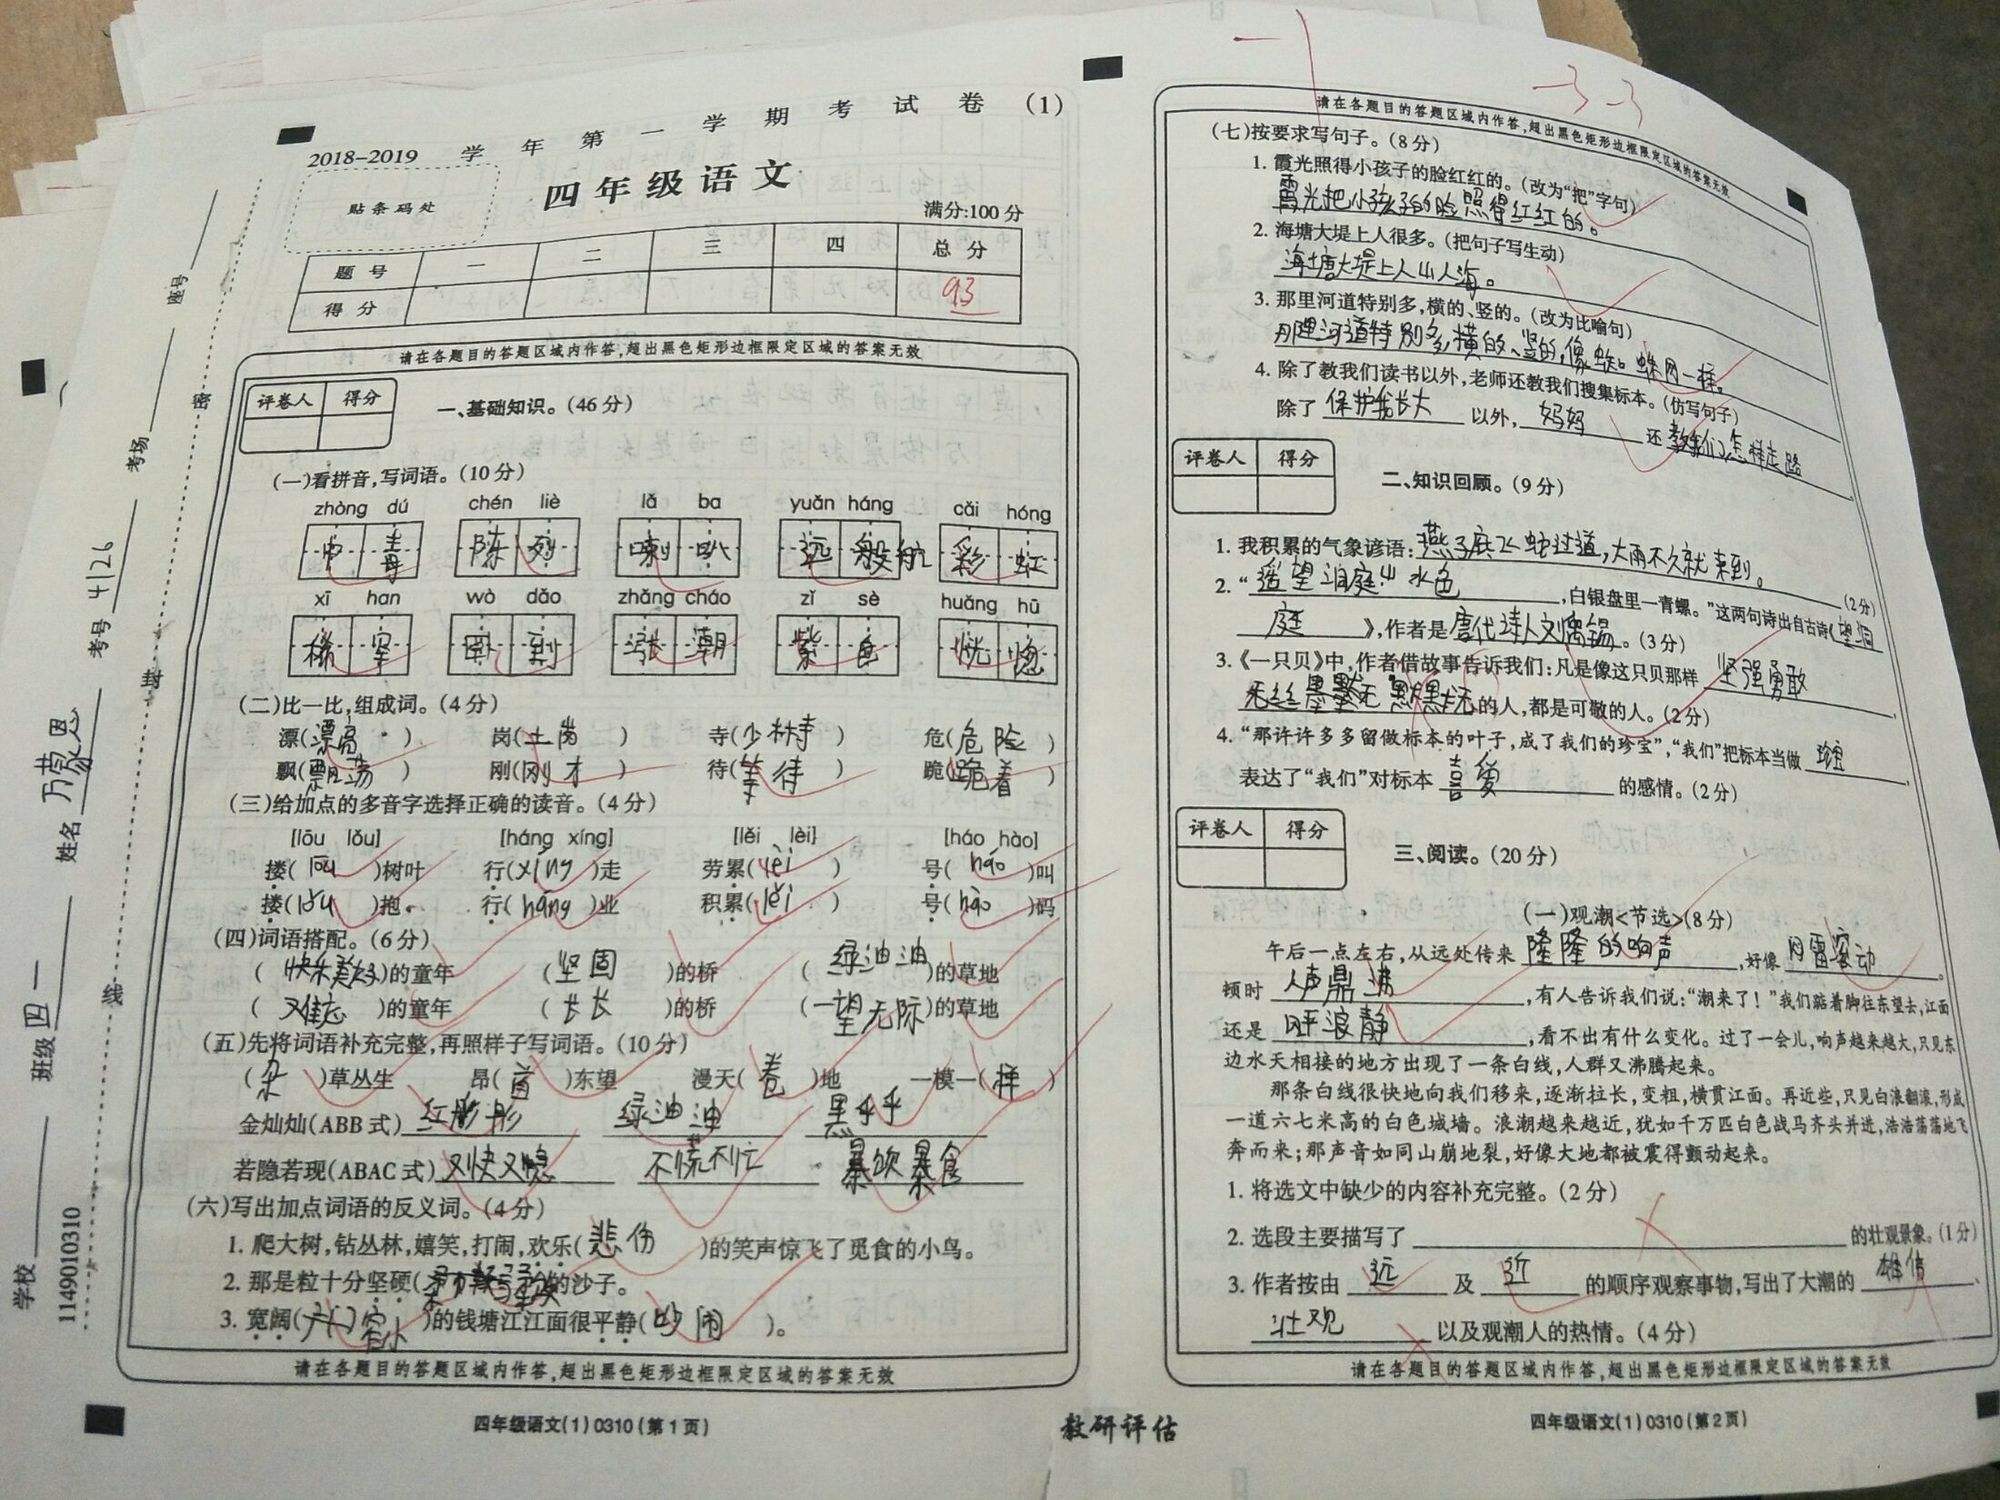 2018-2019 学年第一学期考试卷(1)
四年级语文
贴条码处
满分:100分
题号 一 二 三 四 总分
得分 93
学校 班级 四一 姓名 万蒙恩 考号 4126 考场 座号
1149010310
密 封 线
请在各题目的答题区域内作答,超出黑色矩形边框限定区域的答案无效
评卷人 得分
一、基础知识。(46分)
(一)看拼音,写词语。(10分)
zhòng dú chén liè lǎ ba yuǎn háng cǎi hóng
中毒 陈列 喇叭 远航 彩虹
xī han wò dǎo zhǎng cháo zǐ sè huǎng hū
稀罕 到 涨潮 紫色 恍惚
(二)比一比,组成词。(4分)
漂(漂亮) 岗(土岗) 寺(少林寺) 危(危险)
飘(飘荡) 刚(刚才) 待(等待) 跪(跪着)
(三)给加点的多音字选择正确的读音。(4分)
[lōu lǒu] [háng xíng] [lěi lèi] [háo hào]
搂(lōu)树叶 行(xíng)走 劳累(lèi) 号(háo)叫
搂(lǒu)抱 行(háng)业 积累(lěi) 号(hào)码
(四)词语搭配。(6分)
(快乐美好)的童年 (坚固)的桥 (绿油油)的草地
(难忘)的童年 (长长)的桥 (一望无际)的草地
(五)先将词语补充完整,再照样子写词语。(10分)
(杂)草丛生 昂(首)东望 漫天(卷)地 一模一(样)
金灿灿(ABB式) 红彤彤 绿油油 黑乎乎
若隐若现(ABAC式) 又快又稳 不慌不忙 暴饮暴食
(六)写出加点词语的反义词。(4分)
1. 爬大树,钻丛林,嬉笑,打闹,欢乐(悲伤)的笑声惊飞了觅食的小鸟。
2. 那是粒十分坚硬( )的沙子。
3. 宽阔( 窄小)的钱塘江江面很平静(吵闹)。
请在各题目的答题区域内作答,超出黑色矩形边框限定区域的答案无效
四年级语文(1)0310(第1页)
教研评估
-1
-3 -3
请在各题目的答题区域内作答,超出黑色矩形边框限定区域的答案无效
(七)按要求写句子。(8分)
1. 霞光照得小孩子的脸红红的。(改为“把”字句)
霞光把小孩子的脸照得红红的。
2. 海塘大堤上人很多。(把句子写生动)
海塘大堤上人山人海。
3. 那里河道特别多,横的、竖的。(改为比喻句)
那里河道特别多,横的、竖的,像蜘蛛网一样。
4. 除了教我们读书以外,老师还教我们搜集标本。(仿写句子)
除了 保护我长大 以外, 妈妈 还 教我们怎样走路
评卷人 得分
二、知识回顾。(9分)
1. 我积累的气象谚语: 燕子底飞蛇过道,大雨不久就来到。 (2分)
2. “ 遥望洞庭山水色 ,白银盘里一青螺。”这两句诗出自古诗《 望洞
庭 》,作者是 唐代诗人刘禹锡 。(3分)
3. 《一只贝》中,作者借故事告诉我们:凡是像这只贝那样 坚强勇敢
默默无 的人,都是可敬的人。(2分)
4. “那许许多多留做标本的叶子,成了我们的珍宝”,“我们”把标本当做 珍宝
表达了“我们”对标本 喜爱 的感情。(2分)
评卷人 得分
三、阅读。(20分)
(一)观潮<节选>(8分)
午后一点左右,从远处传来 隆隆的响声 ,好像 闷雷滚动 。
顿时 人声鼎沸 ,有人告诉我们说:“潮来了!”我们踮着脚往东望去,江面
还是 风平浪静 ,看不出有什么变化。过了一会儿,响声越来越大,只见东
边水天相接的地方出现了一条白线,人群又沸腾起来。
那条白线很快地向我们移来,逐渐拉长,变粗,横贯江面。再近些,只见白浪翻滚,形成
一道六七米高的白色城墙。浪潮越来越近,犹如千万匹白色战马齐头并进,浩浩荡荡地飞
奔而来;那声音如同山崩地裂,好像大地都被震得颤动起来。
1. 将选文中缺少的内容补充完整。(2分)
2. 选段主要描写了 的壮观景象。(1分)
3. 作者按由 远 及 近 的顺序观察事物,写出了大潮的 雄伟 、
壮观 以及观潮人的热情。(4分)
请在各题目的答题区域内作答,超出黑色矩形边框限定区域的答案无效
四年级语文(1)0310(第2页)